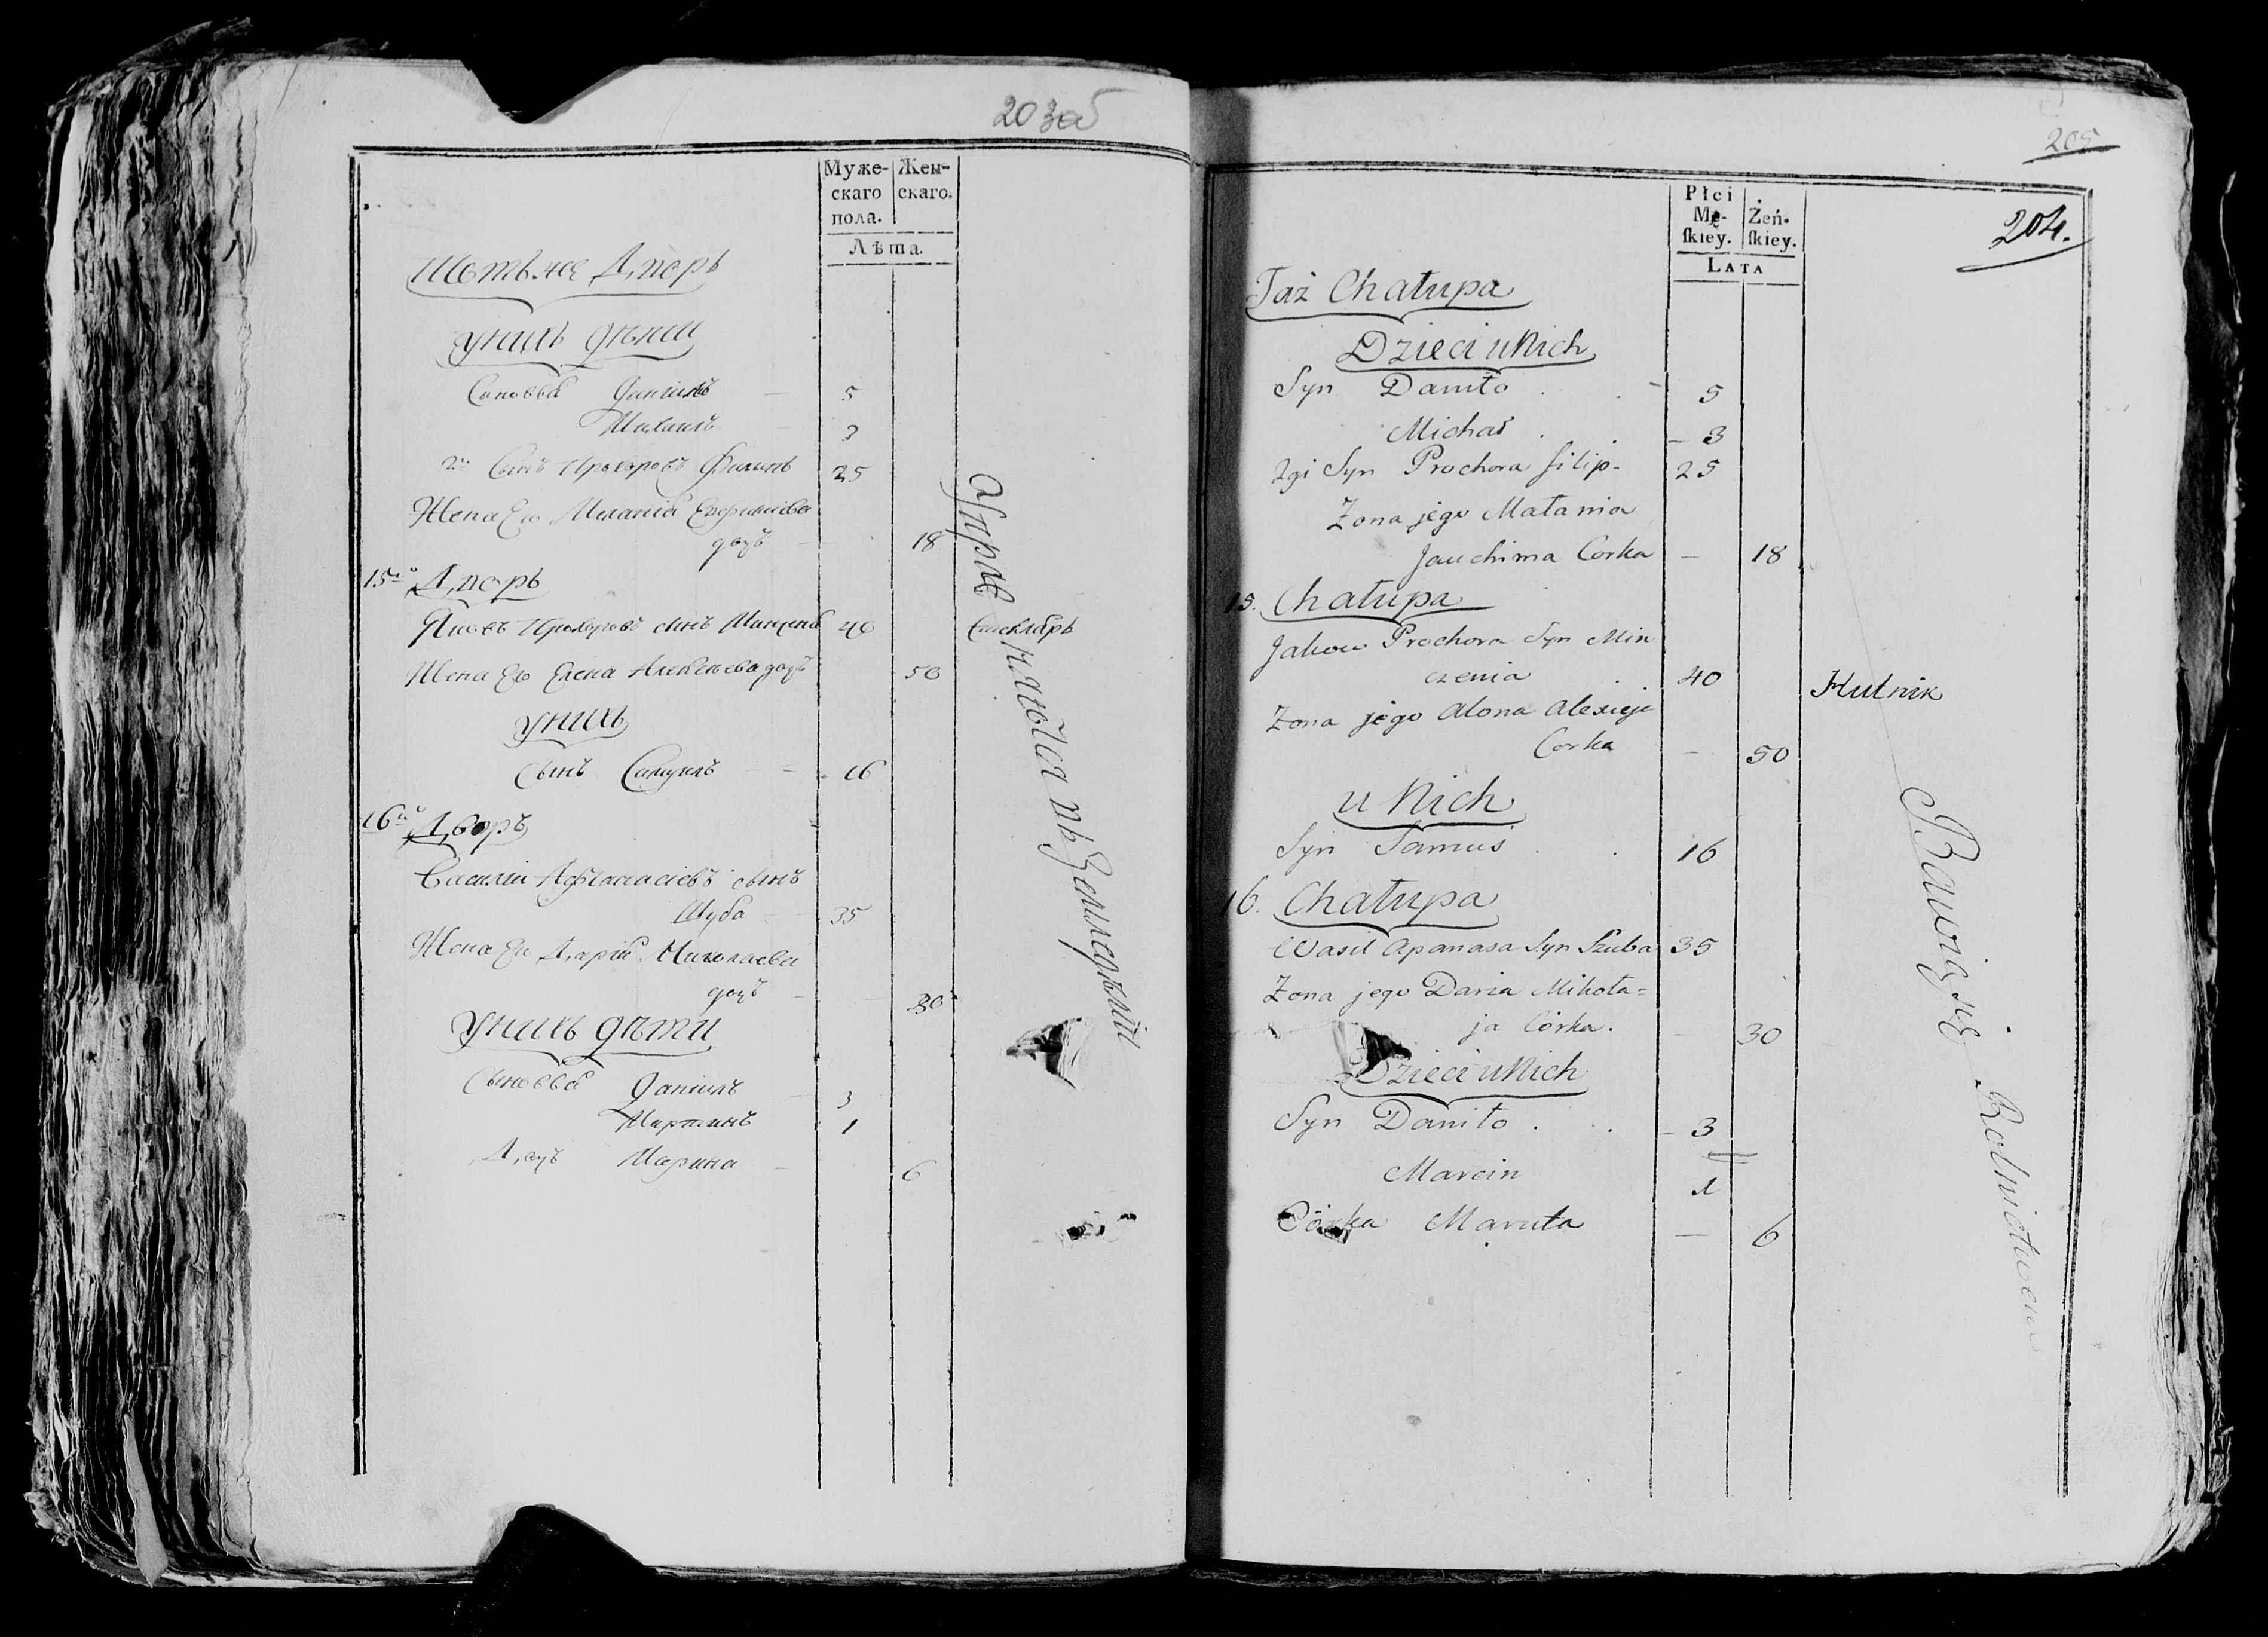 203об
Муже-
скаго
пола.
Жен-
скаго.
Лѣта.
Тотъ же Дворъ
У нихъ дѣти
Сыновья Данiилъ 5
Михаилъ 3
2й Сынъ Прохоровъ Филипъ 25
Жена Его Меланiя Ефимiева
дочь 18
15й Дворъ
Яковъ Прохоровъ сынъ Минченя 40 Стекляръ
Жена Его Елена Алексѣева дочь 50
У нихъ
Сынъ Самуилъ 16
16й Дворъ
Василiй Афанасiевъ сынъ
Шуба 35
Жена Его Дарiя Николаева
дочь 30
У нихъ дѣти
Сыновья Данiилъ 3
Мартинъ 1
Дочь Марина 6
205
204.
Płci
Mę-
skiey.
Żeń-
skiey.
LATA
Taż Chałupa
Dzieci u Nich
Syn Daniło 5
Michaś 3
2gi Syn Prochora filip 25
Żona jego Małania
Jauchima Corka 18
15. Chałupa
Jakow Prochora Syn Min
czenia 40 Hutnik
Żona jego Alona Alexieja
Corka 50
u Nich
Syn Samuś 16
16. Chałupa
Wasil Apanasa Syn Szuba 35
Żona jego Daria Mikoła=
ja Córka. 30
Dzieci u Nich
Syn Daniło 3
Marcin 1
Córka Maruta 6
Bawią się Rolnictwem